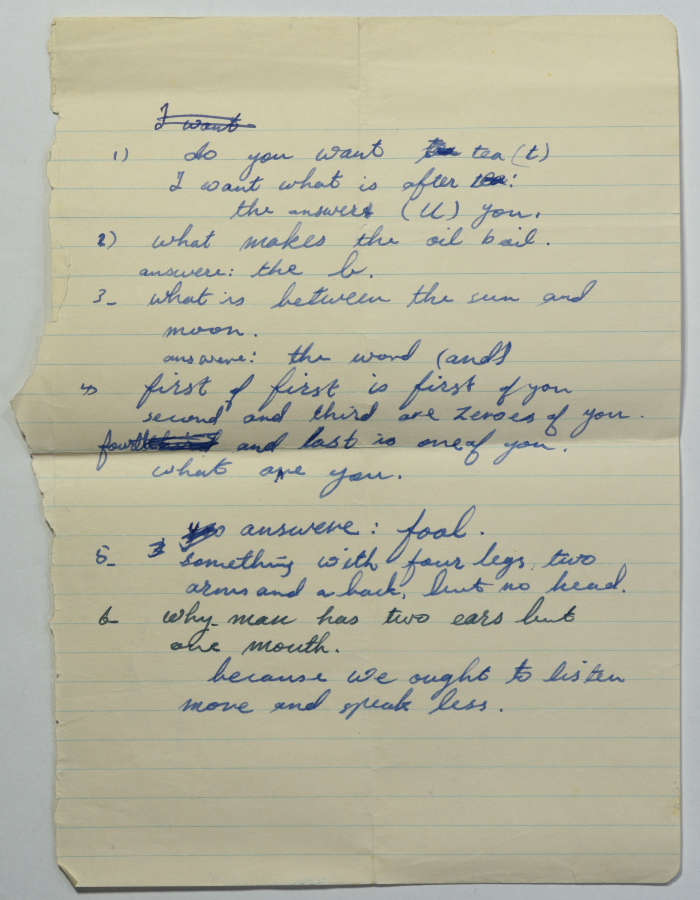 I want
1) do you want tea (t)
I want what is after tea:
the answers (U) you.
2) what makes the oil boil.
answere: the b.
3- what is between the sun and
moon.
answere: the word (and)
4) first of first is first of you
second and third are zeroes of you.
fourth and last is one of you.
what are you.
answere: fool.
5- something with four legs, two
arms and a back, but no head.
6- why man has two ears but
one mouth.
because we ought to listen
more and speak less.